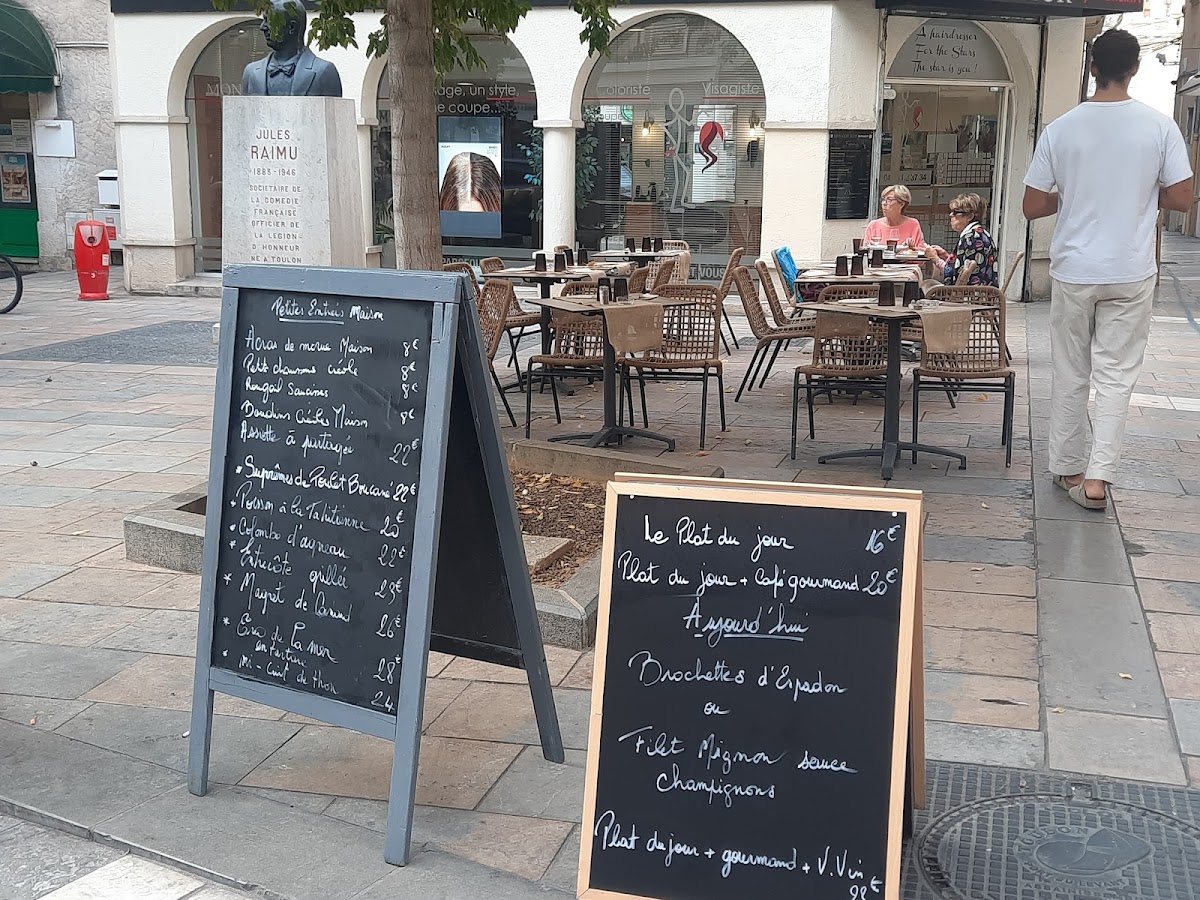 JULES
RAIMU
1883 - 1946
SOCIÉTAIRE DE
LA COMÉDIE
FRANÇAISE
OFFICIER DE
LA LÉGION
D HONNEUR
NE A TOULON
un style,
ne coupe...
oloriste
Visagiste
A hairdresser
For the Stars
The star is you!
Petites Entrées Maison
Acras de morue Maison 8€
Petit chaussons créole 8€
Rougail Saucisses 8€
Boudins Créoles Maison 8€
Assiette à partager 22€
Suprêmes de Poulet Boucané 22€
Poisson à la Tahitienne 20€
Colombo d'agneau 22€
Entrecôte grillée 29€
Magret de Canard 26€
de la mer 28€
en tartare
mi-cuit de thon 24
Le Plat du jour 16€
Plat du jour + Café gourmand 20€
Aujourd'hui
Brochettes d'Espadon
ou
Filet Mignon sauce
Champignons
Plat du jour + gourmand + V.Vin
€